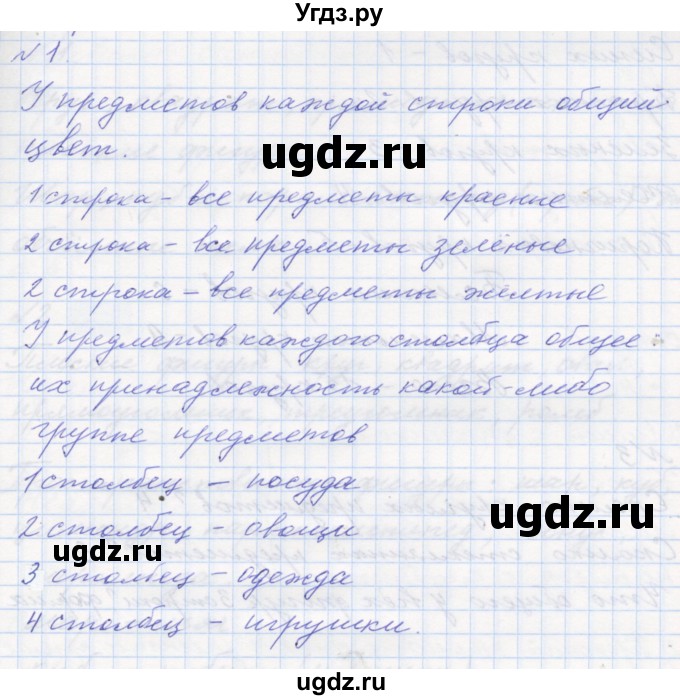 Угдз.ру
№1.
У предметов каждой строки общий
цвет.
ugdz.ru
1 строка – все предметы красные
2 строка – все предметы зелёные
2 строка – все предметы жёлтые
У предметов каждого столбца общее
их принадлежность какой-либо
группе предметов
1 столбец – посуда
ugdz.ru
2 столбец – овощи
ugdz.ru
3 столбец – одежда
4 столбец – игрушки.
ugdz.ru
ugdz.ru